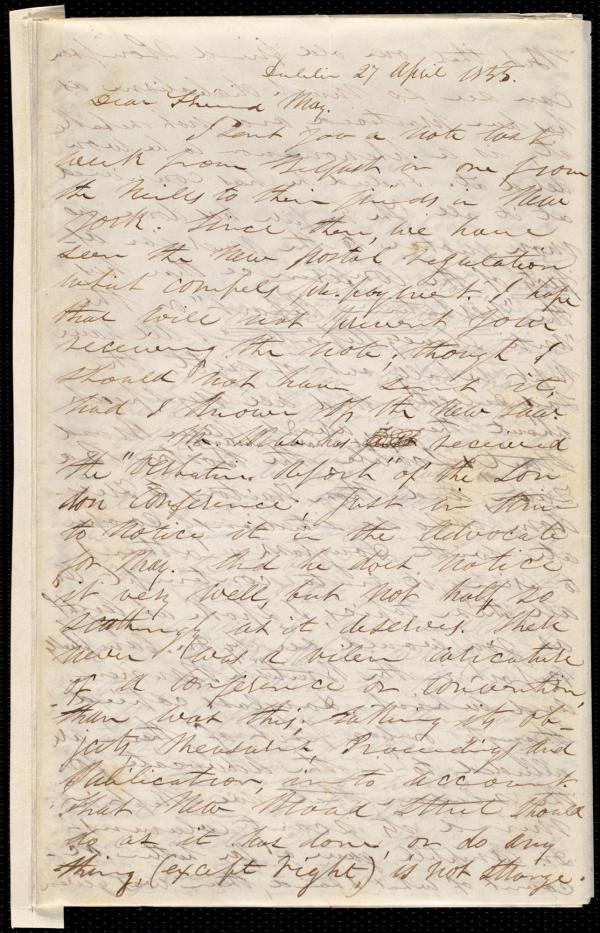 Dublin 27 April 1855.
Dear Friend May,
I sent you a note last
week from Belfast in one from
the Mills to their friends in New
York. Since then, we have
seen the New postal regulation
which compels pre-payment. I hope
that will not prevent your
receiving the note, though I
should not have sent it,
had I known of the new law
Mr. has received
the "Verbatim Report" of the Lon
don Conference, just in time
to notice it in the Advocate
for May. And he does notice
it very well, but not half so
scathingly as it deserves. There
never was a viler caricature
of a Conference or Convention,
than was this, taking its ob-
jects, measures, Proceedings and
Publication, into account.
That New Broad Street should
do as it has done, or do any
thing, (except right,) is not strange.